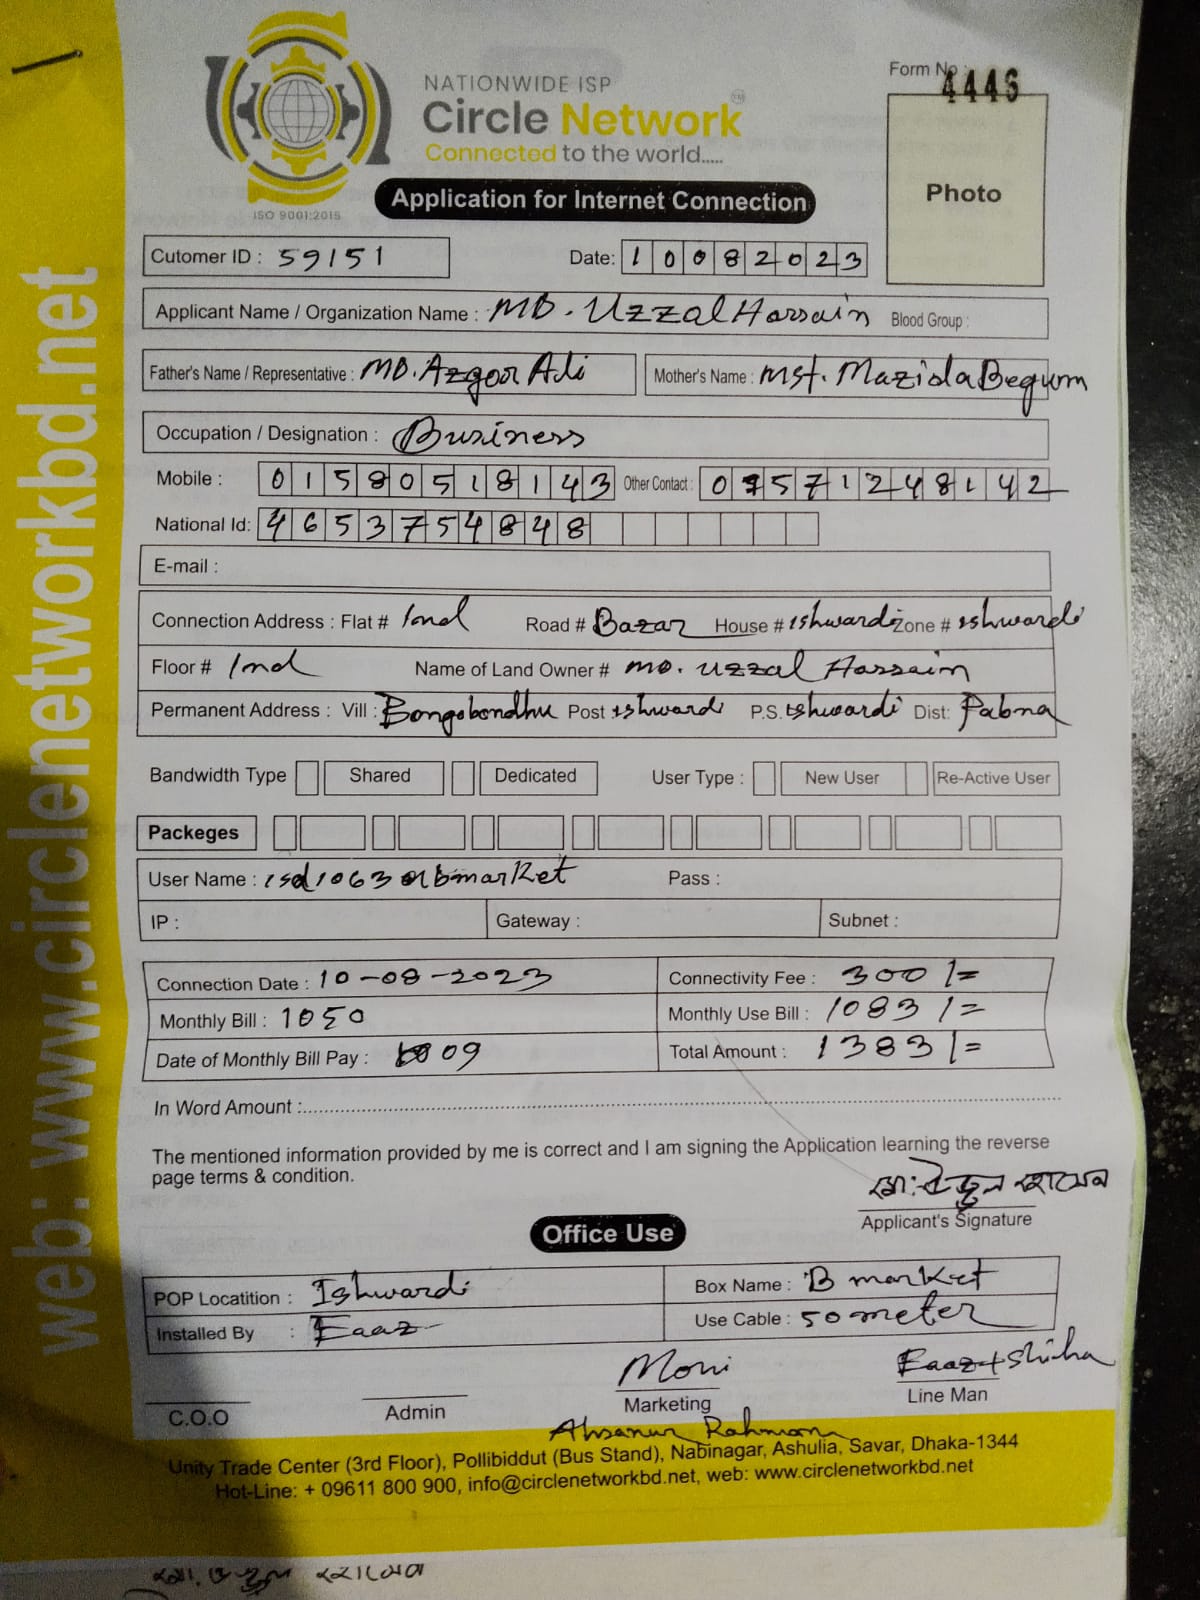 Form No : 4446
NATIONWIDE ISP
Circle Network
TM
Connected to the world.....
ISO 9001:2015
Photo
Application for Internet Connection
Cutomer ID : 59151 Date: 10082023
Applicant Name / Organization Name : MD. Uzzal Hossain Blood Group :
Father's Name / Representative : MD. Azgor Ali Mother's Name : Mst. Mazida Begum
Occupation / Designation : Business
Mobile : 01580518143 Other Contact : 01571248142
National Id: 4653754848
E-mail :
Connection Address : Flat # 1nd Road # Bazar House # ishwardi Zone # ishwardi
Floor # 1nd Name of Land Owner # MD. Uzzal Hossain
Permanent Address : Vill : Bongobondhu Post ishwardi P.S. ishwardi Dist: Pabna
Bandwidth Type Shared Dedicated User Type : New User Re-Active User
Packeges
User Name : isd1063 bmarket Pass :
IP : Gateway : Subnet :
Connection Date : 10-08-2023 Connectivity Fee : 300/=
Monthly Bill : 1050 Monthly Use Bill : 1083/=
Date of Monthly Bill Pay : 09 Total Amount : 1383/=
In Word Amount :
The mentioned information provided by me is correct and I am signing the Application learning the reverse
page terms & condition.
মো: উজ্জল হোসেন
Applicant's Signature
Office Use
POP Locatition : Ishwardi Box Name : B market
Installed By : Eaaz Use Cable : 50 meter
Moni Eaaz + Shiha
C.O.O Admin Marketing Line Man
Ahsanur Rahman
Unity Trade Center (3rd Floor), Pollibiddut (Bus Stand), Nabinagar, Ashulia, Savar, Dhaka-1344
Hot-Line: + 09611 800 900, info@circlenetworkbd.net, web: www.circlenetworkbd.net
web: www.circlenetworkbd.net